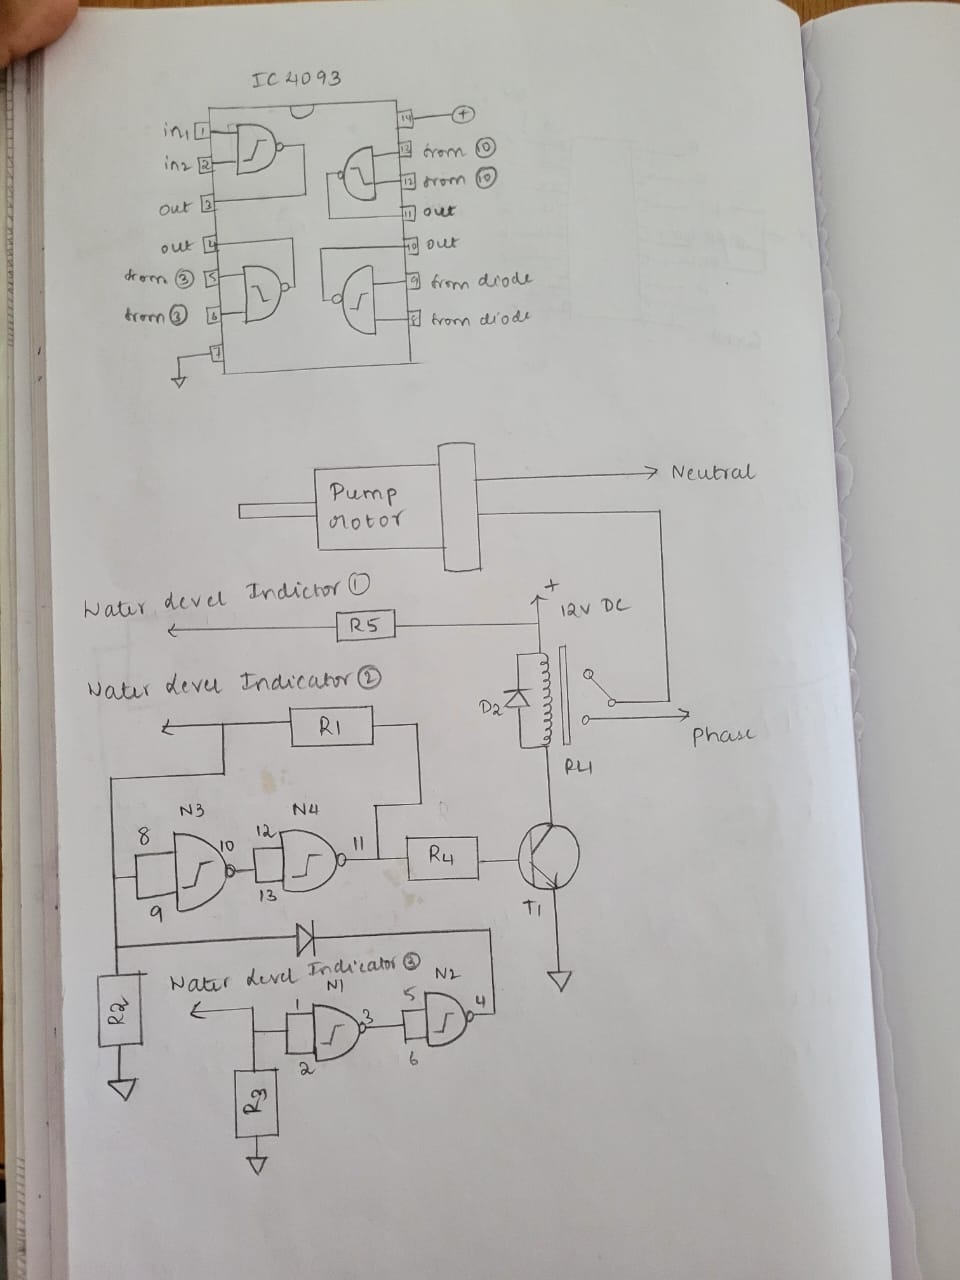 IC 4093
in1 1
in2 2
out 3
out 4
from ③ 5
from ③ 6
7
14 +
13 from ⑩
12 from ⑩
11 out
10 out
9 from diode
8 from diode
Pump
Motor
Neutral
Water level Indictor ①
R5
+
12V DC
Water level Indicator ②
R1
D2
Phase
RL1
N3
N4
8
10
12
11
9
13
R4
T1
Water level Indicator ③
N1
N2
R2
1
3
5
4
2
6
R3